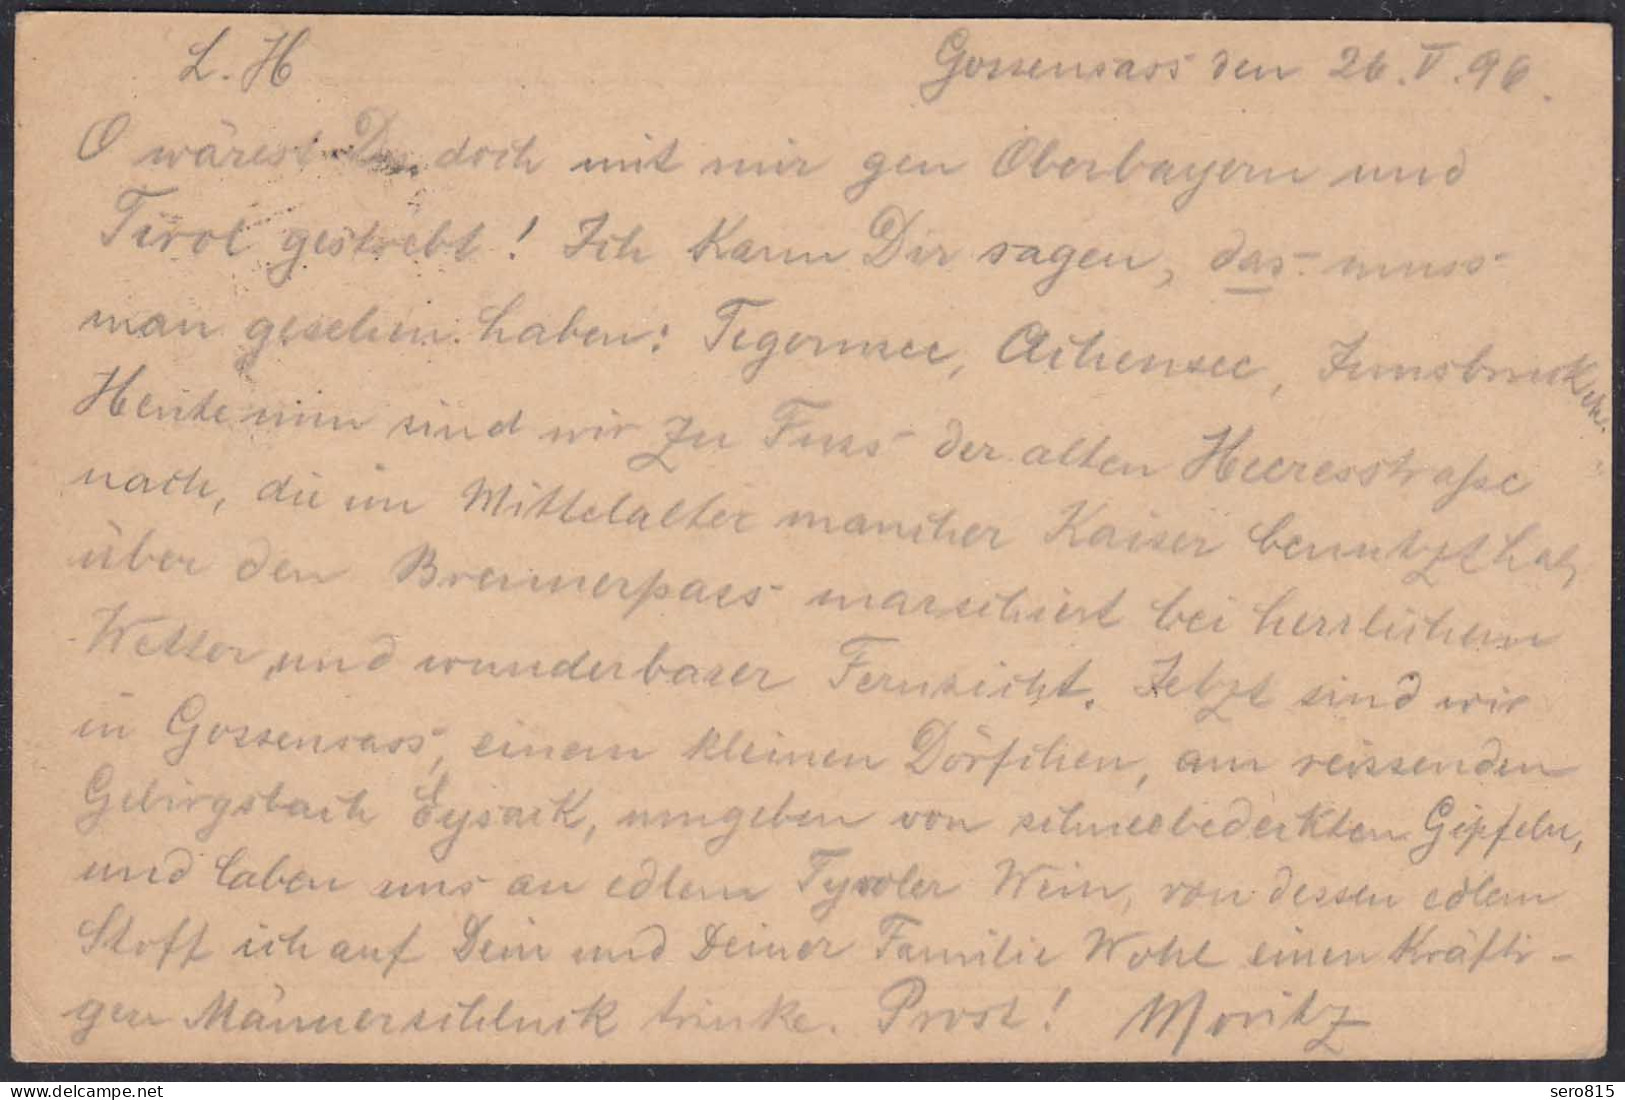 L. H
Gossensass den 26. V. 96.
O wärest Du doch mit mir gen Oberbayern und
Tirol gestrebt! Ich kann Dir sagen, das muss
man gesehen haben: Tegernsee, Achensee, Innsbruck etc.
Heute nun sind wir zu Fuss der alten Heeresstraße
nach, die im Mittelalter mancher Kaiser benutzt hat,
über den Brennerpass marschiert bei herrlichem
Wetter und wunderbarer Fernsicht. Jetzt sind wir
in Gossensass, einem kleinen Dörfchen, am reissenden
Gebirgsbach Eysack, umgeben von schneebedeckten Gipfeln,
und laben uns an edlem Tyroler Wein, von dessen edlem
Stoff ich auf Dein und Deiner Familie Wohl einen kräfti-
gen Männerschluck trinke. Prost! Moritz
www.delcampe.net
sero815